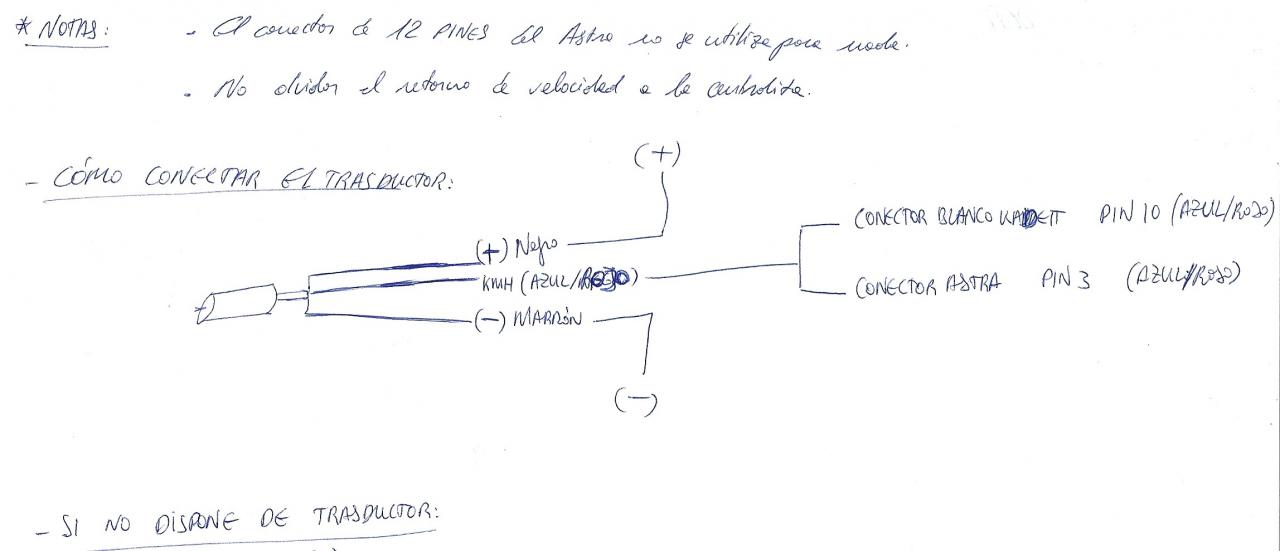 * NOTAS:
- El conector de 12 PINES del Astra no se utiliza para nada.
- No olvidar el retorno de velocidad a la centralita.
- CÓMO CONECTAR EL TRASDUCTOR:
(+)
(+) Negro
KMH (AZUL/ROJO)
(-) MARRÓN
(-)
CONECTOR BLANCO KADETT PIN 10 (AZUL/ROJO)
CONECTOR ASTRA PIN 3 (AZUL/ROJO)
- SI NO DISPONE DE TRASDUCTOR: